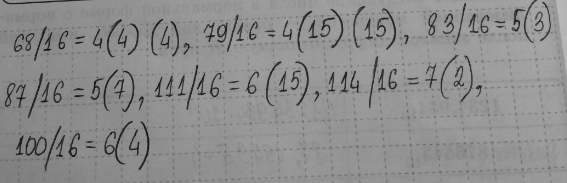 68/16 = 4(4) (4), 79/16 = 4(15) (15), 83/16 = 5(3)
87/16 = 5(7), 111/16 = 6(15), 114/16 = 7(2),
100/16 = 6(4)